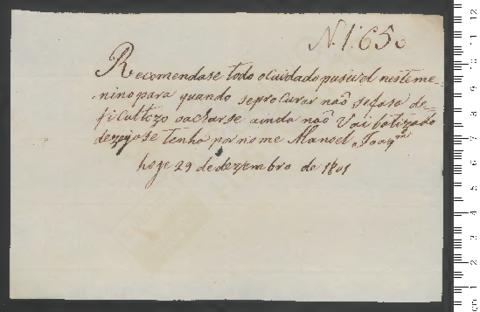 N. 1:650
Recomendase todo ocuidado pusivel nesteme-
nino para quando seprocurar não sefase de-
ficultozo oacharse ainda não Vai botizado
dezejase tenha por nome Manoel, Joaqm
hoje 29 de dezembro de 1801